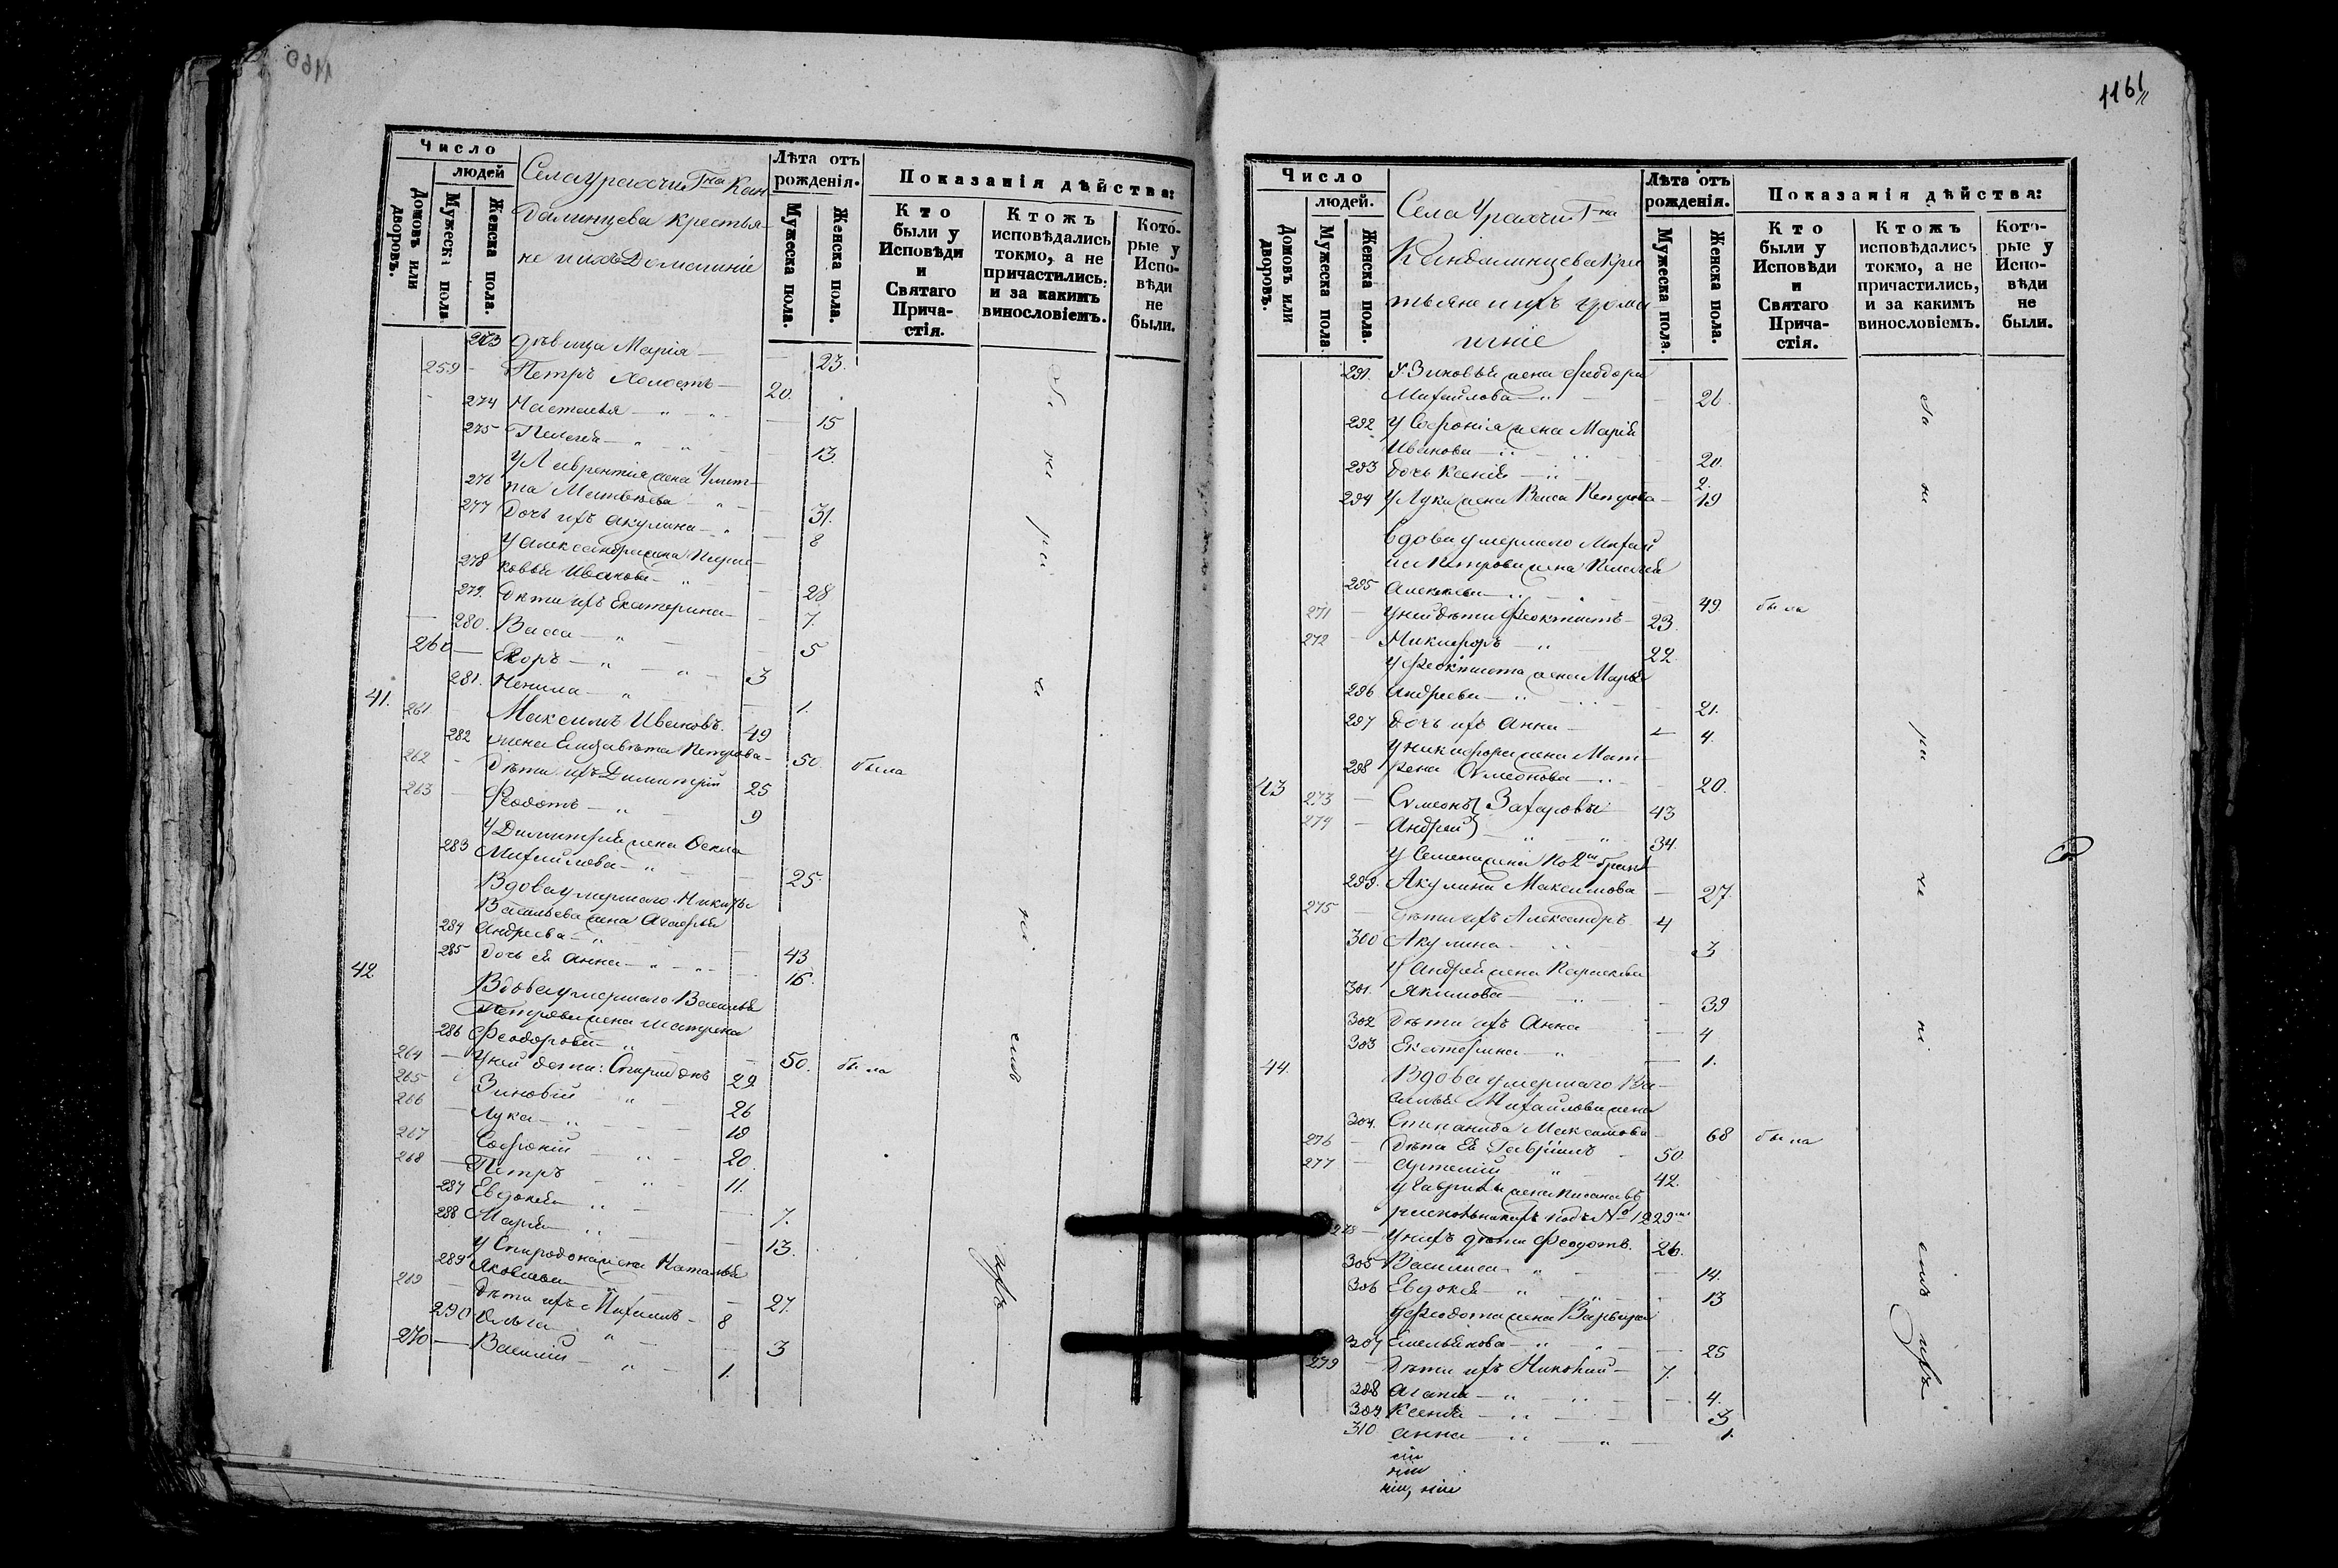 1160
Число
людей
Домовъ или дворовъ.
Мужеска пола.
Женска пола.
Села Урахчи Гна Кан
далинцева крестья-
не и ихъ Домашніе
Лѣта отъ рожденія.
Мужеска пола.
Женска пола.
Показанія дѣйства:
Кто были у Исповѣди и Святаго Причастія.
Ктожъ исповѣдались токмо, а не причастились, и за какимъ винословіемъ.
Которые у Исповѣди не были.
273 дѣвица Марія 23.
259 Петръ холостъ 20.
274 Наталья 15
275 Пелагея 13.
У Лаврентія жена Улит-
276 та Матвѣева 31.
277 Дочь ихъ Акулина 8
У Александра жена Пера-
278 ковья Иванова 28
279. Дѣти ихъ Екатерина 7.
280. Васса 5
260 Егоръ 3
281. Ненила 1.
41. 261 Максимъ Ивановъ. 49
282 жена Елизавета Петрова 50. была
262 Дѣти ихъ Димитрій 25
263 Феодотъ 9
У Димитрія жена Фекла
283 Михайлова 25.
Вдова умершаго Никиты
Васильева жена Агафья
284 Андреева 43
285 дочь ея Анна 16.
42 Вдова умершаго Василья
Петрова жена Матрена
286 Феодорова 50. была
264 У ней дети: Спиридонъ 29
265 Зиновій 26
266 Лука 18
267 Софроній 20
268 Петръ 11.
287 Евдокея 7.
288 Марья 13.
У Спиридона жена Наталья
289 Яковлева 27.
269 Дѣти ихъ Михаилъ 8
290 Ольга 3
270 Василій 1.
За не ра че ні емъ ихъ
1161
Число
людей.
Домовъ или дворовъ.
Мужеска пола
Женска пола.
Села Урахчи Гна
Кандалинцева кре
тьяне и ихъ дома
шніе
Лѣта отъ рожденія.
Мужеска пола.
Женска пола.
Показанія дѣйства:
Кто были у Исповѣди и Святаго Причастія.
Ктожъ исповѣдались токмо, а не причастились, и за какимъ винословіемъ.
Которые у Исповѣди не были.
291. У Зиновья жена Феодора
Михайлова 26
292 У Софронія жена Марья
Иванова 20.
293 дочь Ксенія 2.
294 У Луки жена Васса Петрова 19
Вдова умершаго Михаи
ла Петрова жена Пелагея
295 Алексѣева 49. была
271 У ней дѣти Феоктистъ 23.
272 Никифоръ 22
У Феоктиста жена Марья
296 Андреева 21.
297 дочь ихъ Анна 4.
У Никифора жена Мат-
298 рена Симеонова 20.
43 273 Симеонъ } Захаровы 43
274 Андрей } 34.
У Семена жена по 2мъ бракѣ
299. Акулина Максимова 27.
275 Дѣти ихъ Александръ 4
300 Акулина 3
У Андрея жена Параскева
301. Якимова 39
302 Дѣти ихъ Анна 4
303 Екатерина 1.
44. Вдова умершаго Ва-
силья Михайлова жена
304. Степанида Максимова 68 была
276 Дѣти Ея Гавріилъ 50.
277 Артемій 42.
У Гаврилы жена писана въ
раскольникахъ подъ № 1229мъ
278 У нихъ дѣти Феодотъ. 26.
305 Василиса 14.
306 Евдокея 13
У Феодота жена Варвара
307 Емельянова 25
279 Дѣти ихъ Николай 7.
308 Агапія 4.
309 Ксенья 3
310 Анна 1.
За не ра че ні емъ ихъ